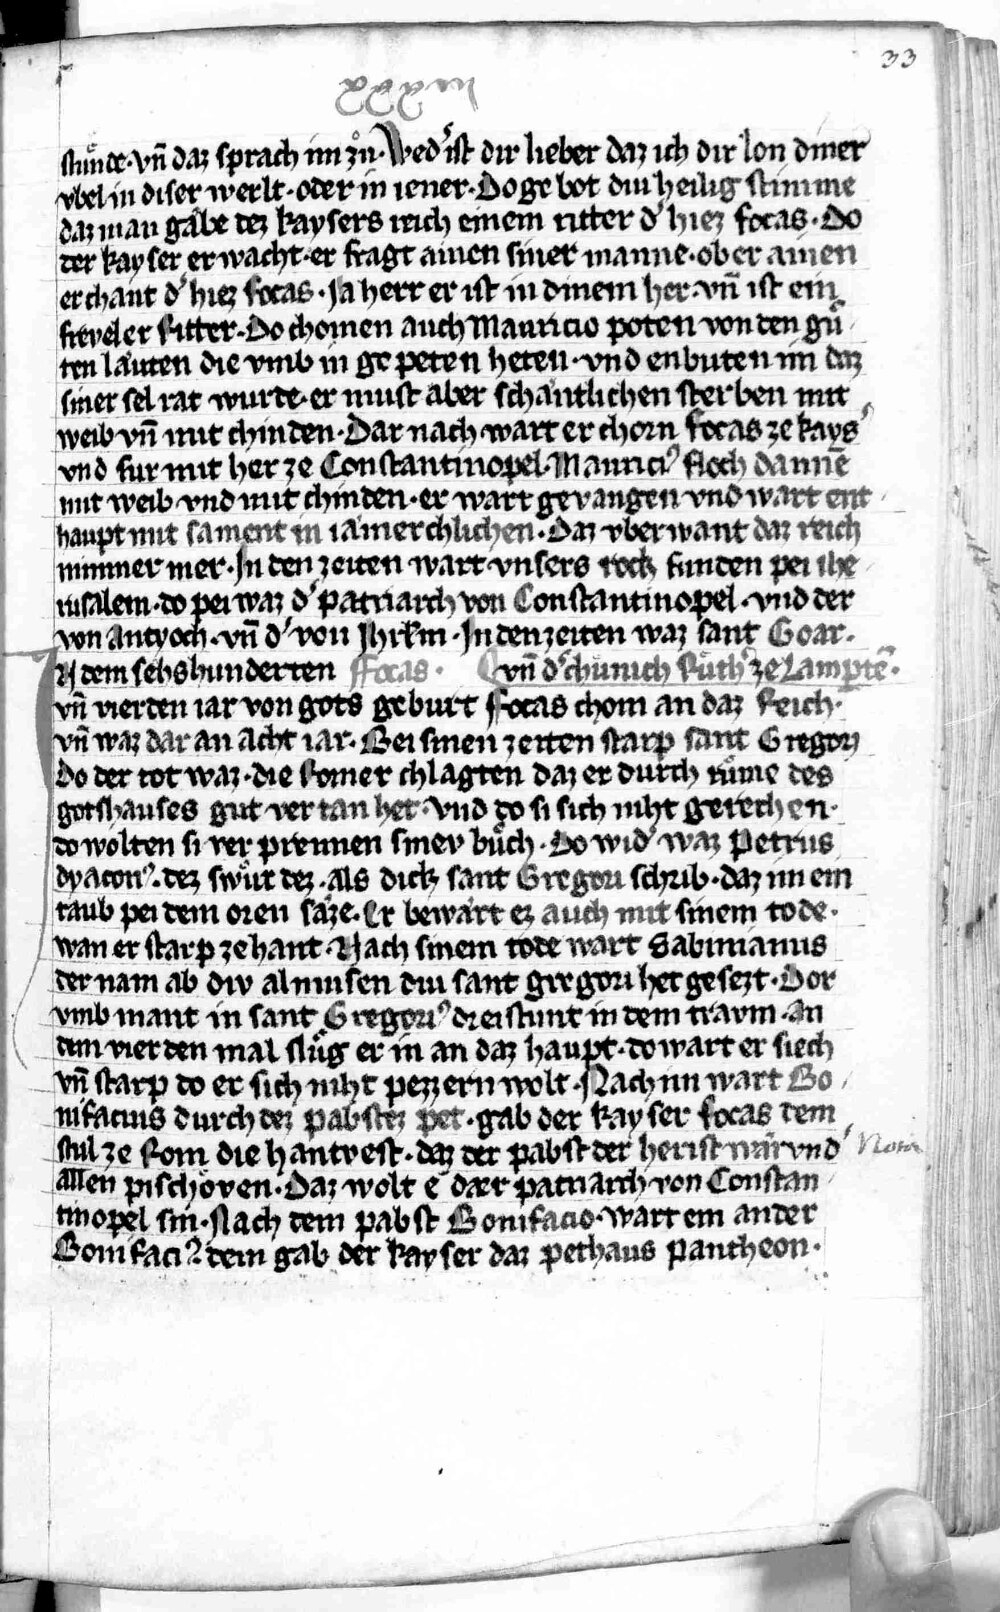 33
stuͦnde · vn̄ daz sprach im zuͦ · Wedˀ ist dir lieber daz ich dir lon diner
vbel in diser werlt · oder in iener · Do ge bot diu heilig stimme
daz man gaͤbe dez kaysers reich einem ritter dˀ hiez focas · Do
der kayser er wacht · er fragt ainen siner manne · ob er ainen
er chant dˀ hiez focas · Ja herr er ist in dinem her · vn̄ ist ein
freveler Ritter · Do chomen auch Mauricio poten von den guͦ
ten laͤuten die vmb in ge peten heten · vnd enbuten im daz
siner sel rat wurde · er must aber schantlichen sterben mit
weib vn̄ mit chinden · Dar nach wart er chorn focas ze kaysˀ
vnd fur mit her ze Constantinopel · Mauriciꝰ floch dannē
mit weib vnd mit chinden · er wart gevangen vnd wart ent
haupt mit sament in iamerchlichen · Daz vber want daz reich
nimmer mer · In den zeiten wart vnsers rock funden pei ihe
rusalem · do pei waz dˀ patriarch von Constantinopel · vnd der
von Antyoch · vn̄ dˀ von Jhrlm · In den zeiten waz sant Goar ·
In dem sehshunderten ffocas · vn̄ dˀ chuͤnich Ruͦthˀ ze Lampte᷒ ·
vn̄ vierden iar von gots geburt ffocas chom an daz Reich ·
vn̄ waz dar an acht iar · Bei sinen zeiten starp sant Gregorij
Do der tot waz · die Romer chlagten daz er durch ruͦme des
gotshauses gut ver tan het · vnd do si sich niht gerechen ·
do wolten si ver prennen sinev buͦch · Do widˀ waz Petrus
dyaconꝰ · dez swuͦr dez · als dick sant Gregori schrib · daz im ein
taub pei dem oren saͤze · Er bewaͤrt ez auch mit sinem tode ·
wan er starp ze hant · Nach sinem tode wart Sabinianus
der nam ab div almusen diu sant gregori het gesezt · Dor
vmb mant in sant Gregoriꝰ dreistunt in dem travm · an
dem vierden mal sluͦg er in an daz haupt · do wart er siech
vn̄ starp do er sich niht pezzern wolt · Nach im wart Bo
nifacius durch dez pabstez pet · gab der kayser focas dem
stul ze Rom die hantvest · daz der pabst der herist waͤr vndˀ Nota
allen pischoͤven · Daz wolt e der patriarch von Constan
tinopel sin · Nach dem pabst Bonifacio · wart ein ander
Bonifaciꝰ dem gab der kayser daz pethaus Pantheon ·